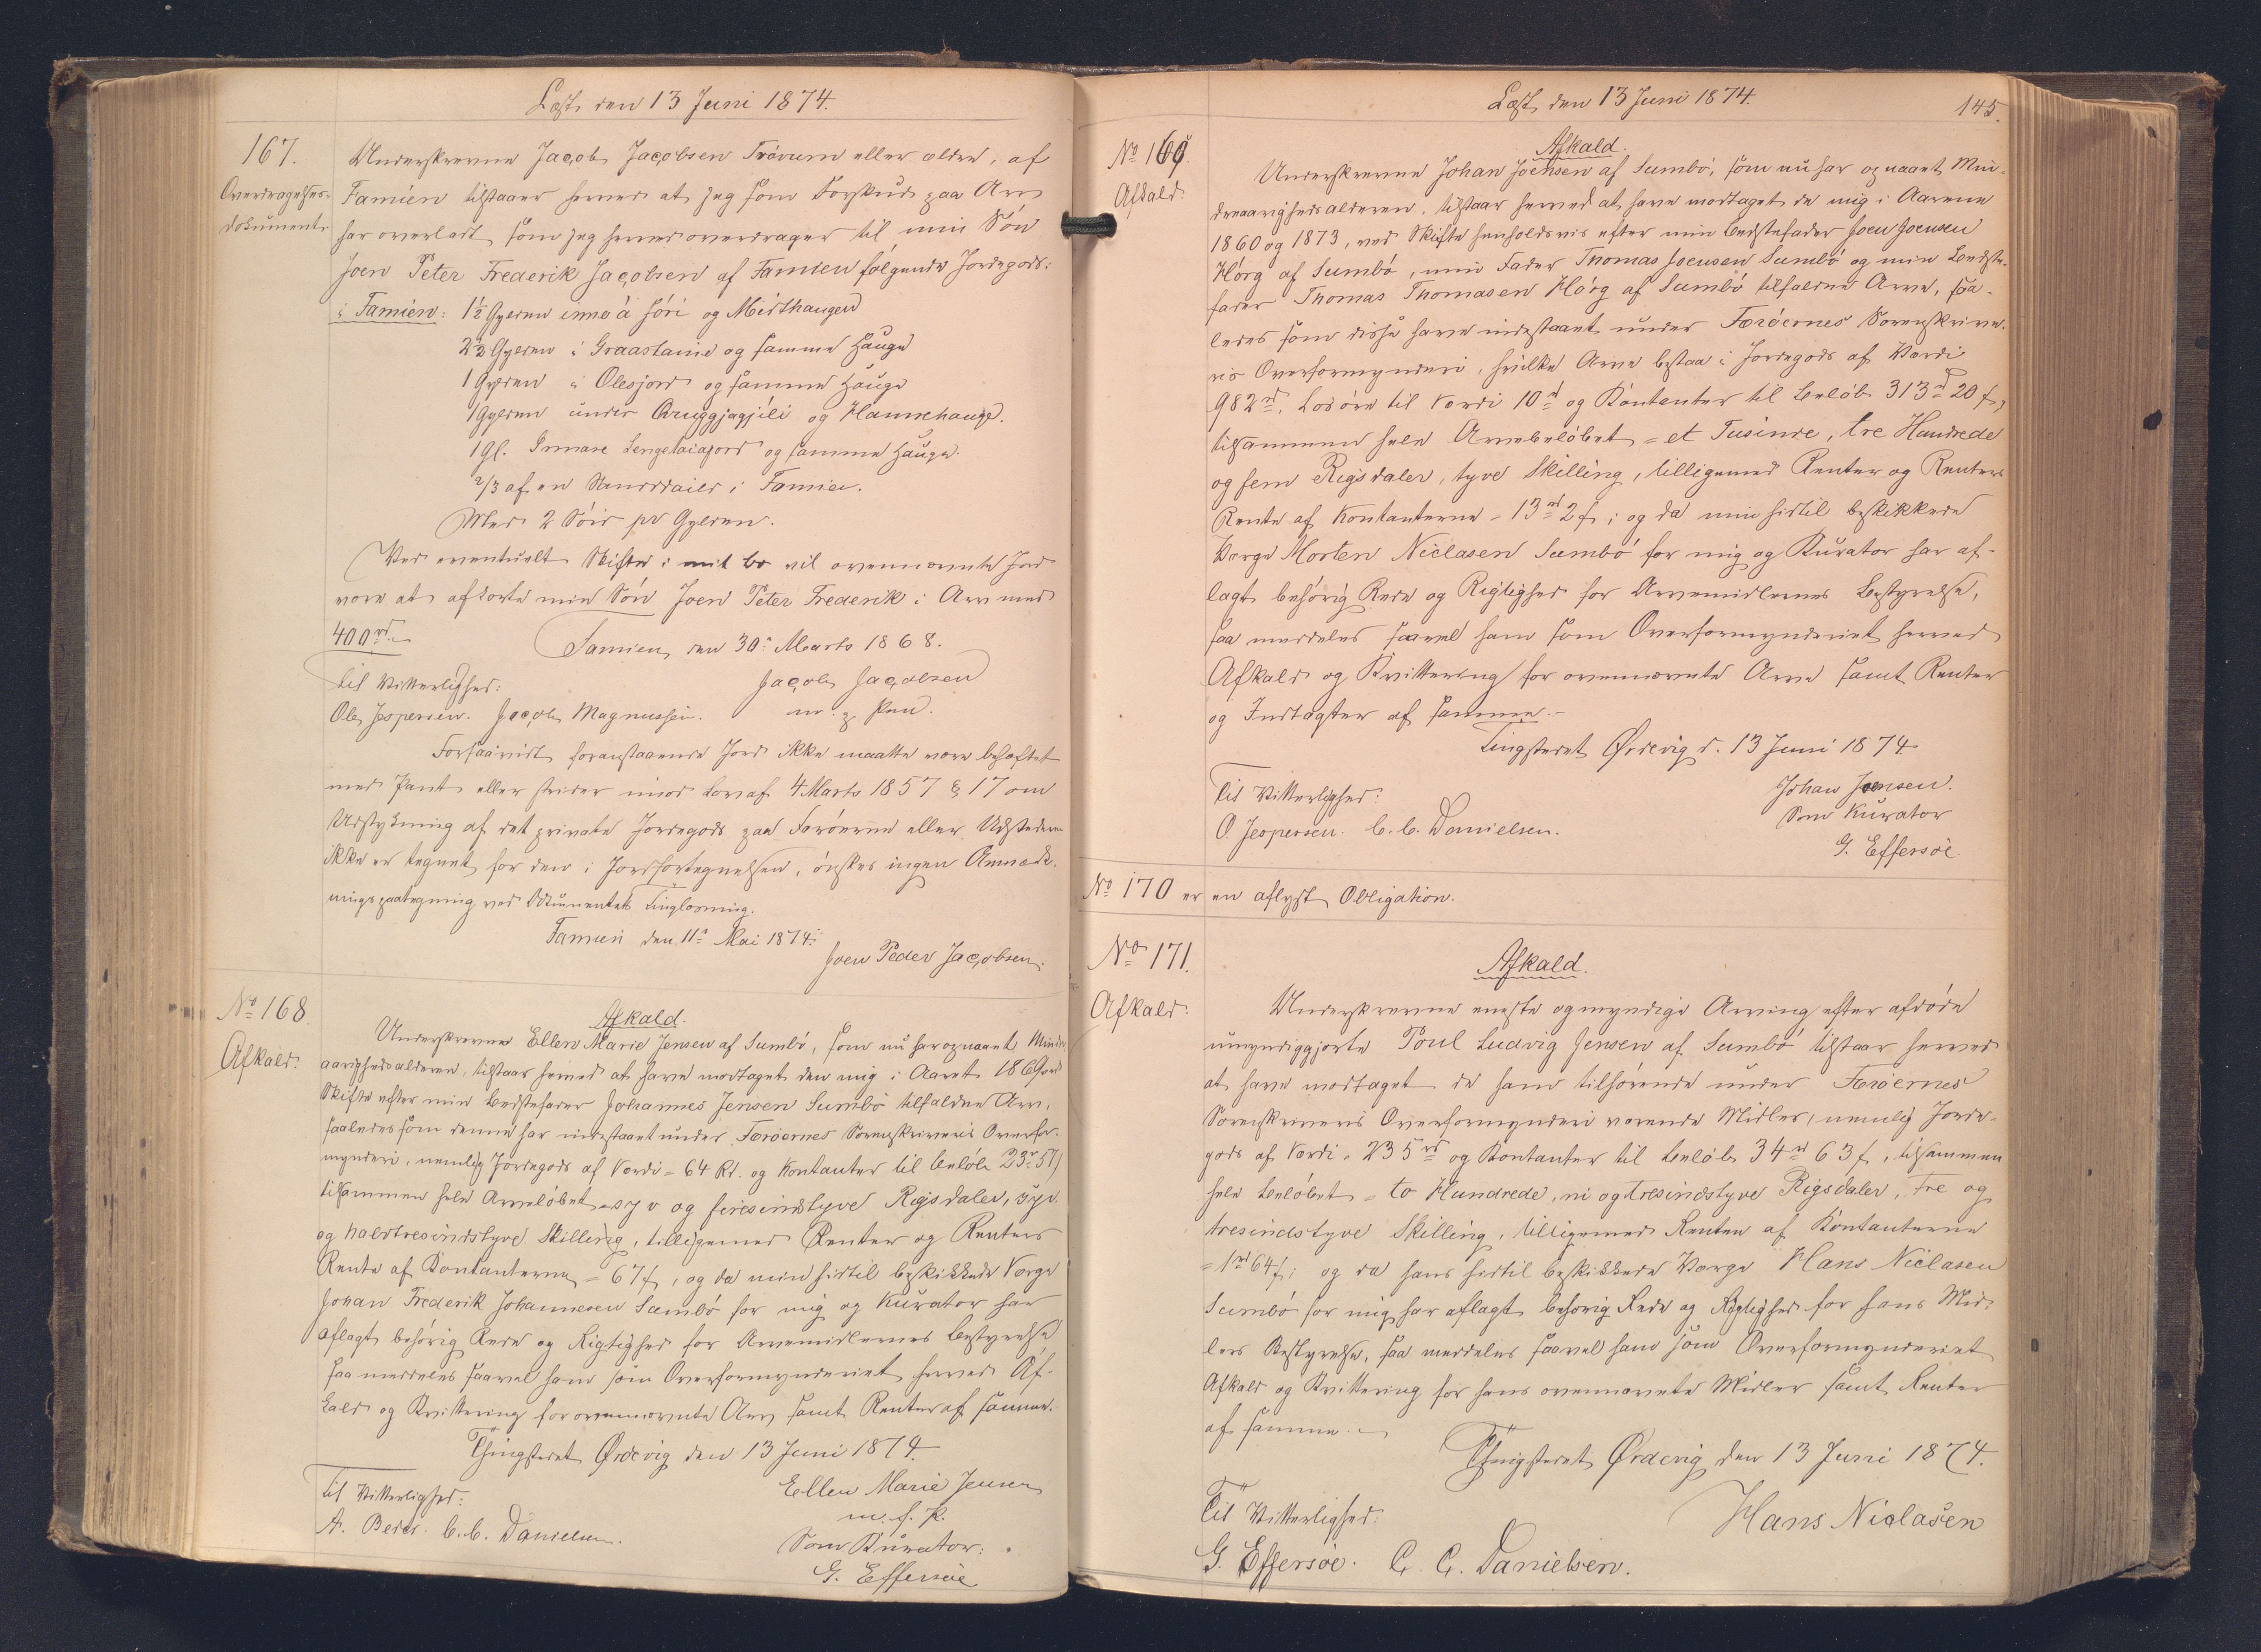 Læst den 13 Juni 1874.
167.
Overdragelses-
dokument.
Underskrevne Jacob Jacobsen Trørum eller ældre, af
Famien tilstaaer herved at jeg som Forskud paa Arv
har overladt, som jeg herved overdrager til min Søn
Joen Peter Frederik Jacobsen af Famien følgende Jordegods:
i Famien: 1½ Gylden inne á Hóri og Midthaugen
2⅔ Gylden i Graastame og samme Hauge
1 Gylden i Olesjord og samme Hauge
1 Gylden under og Hannehauge.
1 Gl. og samme Hauge.
2/3 af en i Famien.
Med 2 pr Gylden.
Ved eventuelt Skifte i mit bo vil ovennævnte Jord
være at afkorte min Søn Joen Peter Frederik i Arv med
400 rd.
Famien, den 30. Marts 1868.
Til Vitterlighed:
Jacob Jacobsen
Ole Jespersen. Jacob Magnussen.
m. p. Pen.
Forsaavidt foranstaaende Jord ikke maatte være behæftet
med Pant eller strider imod Lov af 4 Marts 1857 § 17 om
Udstykning af det private Jordegods paa Færøerne eller Udstederen
ikke er tegnet for den i Jordfortegnelsen, ønskes ingen Anmærk-
ningspaategning ved Dokumentets Tinglæsning.
Famien den 11. Mai 1874.
Joen Peder Jacobsen.
No 168.
Afkald.
Afkald.
Underskrevne Ellen Marie Jensen af Sumbø, som nu har opnaaet Minder-
aarighedsalderen, tilstaar herved at have modtaget den mig i Aaret 1869 ved
Skifte efter min Bedstefader Johannes Jensen Sumbø tilfaldne Arv,
saaledes som denne har indestaaet under Færøernes Sorenskriveris Overfor-
mynderi, nemlig Jordegods af Værdi = 64 Rd. og Kontanter til Beløb 23 r 57 f
tilsammen hele Arvebeløbet = syv og firesindstyve Rigsdaler, syv
og halvtresindstyve Skilling, tilligemed Renter og Renters
Rente af Kontanterne = 67 f, og da min hidtil beskikkede Værge
Johan Frederik Johannesen Sumbø for mig og Kurator har
aflagt behørig Rede og Rigtighed for Arvemidlernes Bestyrelse
saa meddeles saavel ham som Overformynderiet herved Af-
kald og Kvittering for ovennævnte Arv samt Renter af samme.
Thingstedet Ørdevig den 13 Juni 1874.
Til Vitterlighed:
Ellen Marie Jensen
m. f. P.
A. C. C. Danielsen.
Som Kurator:
G. Effersøe
Læst den 13 Juni 1874.
145.
No 169.
Afkald.
Afkald.
Underskrevne Johan Joensen af Sumbø, som nu har opnaaet Min-
dreaarighedsalderen, tilstaar herved at have modtaget de mig i Aarene
1860 og 1873, ved Skifte henholdsvis efter min Bedstefader Joen Joensen
Hørg af Sumbø, min Fader Thomas Joensen Sumbø og min Bedste-
fader Thomas Thomasen Hørg af Sumbø tilfaldne Arve, saa-
ledes som disse have indestaaet under Færøernes Sorenskrive-
ris Overformynderi, hvilke Arve bestaa i Jordegods af Værdi
982 rd, Løsøre til Værdi 10 rd og Kontanter til Beløb 313 rd 20 f,
tilsammen hele Arvebeløbet = et Tusinde, tre Hundrede
og fem Rigsdaler, tyve Skilling, tilligemed Renter og Renters
Rente af Kontanterne = 13 rd 2 f; og da min hidtil beskikkede
Værge Morten Niclasen Sumbø for mig og Kurator har af-
lagt behørig Rede og Rigtighed for Arvemidlernes Bestyrelse,
saa meddeles saavel ham som Overformynderiet herved
Afkald og Kvittering for ovennævnte Arve samt Renter
og Indtægter af samme.-
Tingstedet Ørdevig d. 13 Juni 1874.
Til Vitterlighed:
Johan Joensen.
O. Jespersen. C. C. Danielsen.
Som Kurator
G. Effersøe.
No 170 er en aflyst Obligation.
No 171.
Afkald.
Afkald.
Underskrevne eneste og myndige Arving efter afdøde
umyndiggjorte Poul Ludvig Jensen af Sumbø tilstaar herved
at have modtaget de ham tilhørende under Færøernes
Sorenskriveris Overformynderi værende Midler, nemlig Jorde-
gods af Værdi = 235 rd og Kontanter til Beløb 34 rd 63 f, tilsammen
hele Beløbet = to Hundrede, ni og tresindstyve Rigsdaler, tre og
tresindstyve Skilling, tilligemed Renten af Kontanterne
= 1 rd 64 f; og da hans hidtil beskikkede Værge Hans Niclasen
Sumbø for mig har aflagt behørig Rede og Rigtighed for hans Mid-
lers Bestyrelse, saa meddeles saavel ham som Overformynderiet
Afkald og Kvittering for hans ovennævnte Midler samt Renter
af samme.-
Thingstedet Ørdevig den 13 Juni 1874.
Til Vitterlighed:
Hans Niclasen
G. Effersøe. C. C. Danielsen.